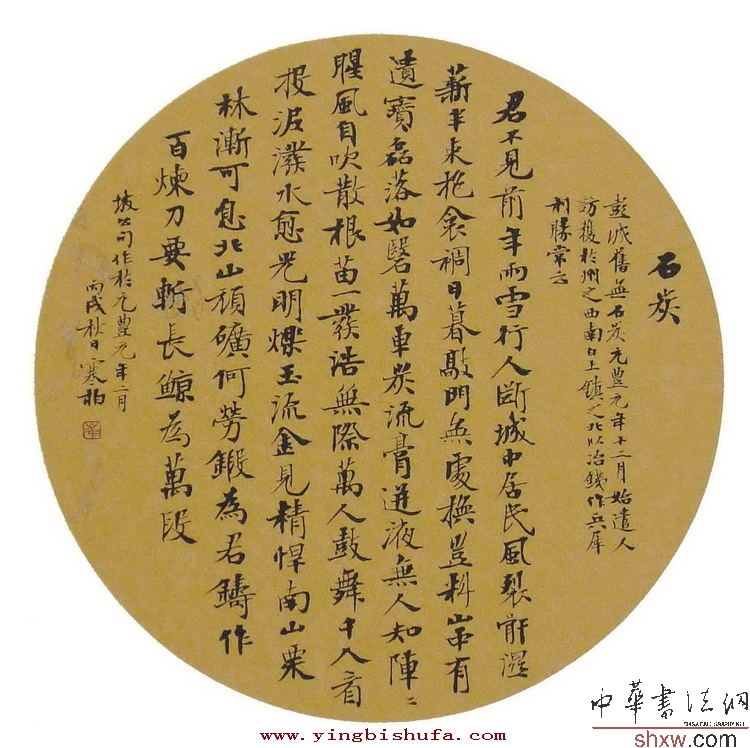 石炭
彭城舊無石炭元豐元年十二月始遣人
訪獲於州之西南白土鎮之北以冶銕作兵犀
利勝常云
君不見前年雨雪行人斷城中居民風裂骭濕
薪半束抱衾裯日暮敲門無處換豈料山中有
遺寶磊落如磐萬車炭流膏迸液無人知陣二
腥風自吹散根苗一發浩無際萬人鼓舞千人看
投泥潑水愈光明爍玉流金見精悍南山栗
林漸可息北山頑礦何勞鍛為君鑄作
百煉刀要斬長鯨為萬段
坡公作於元豐元年二月
丙戌秋日寒柏
中華書法網
shxw.com
www.yingbishufa.com